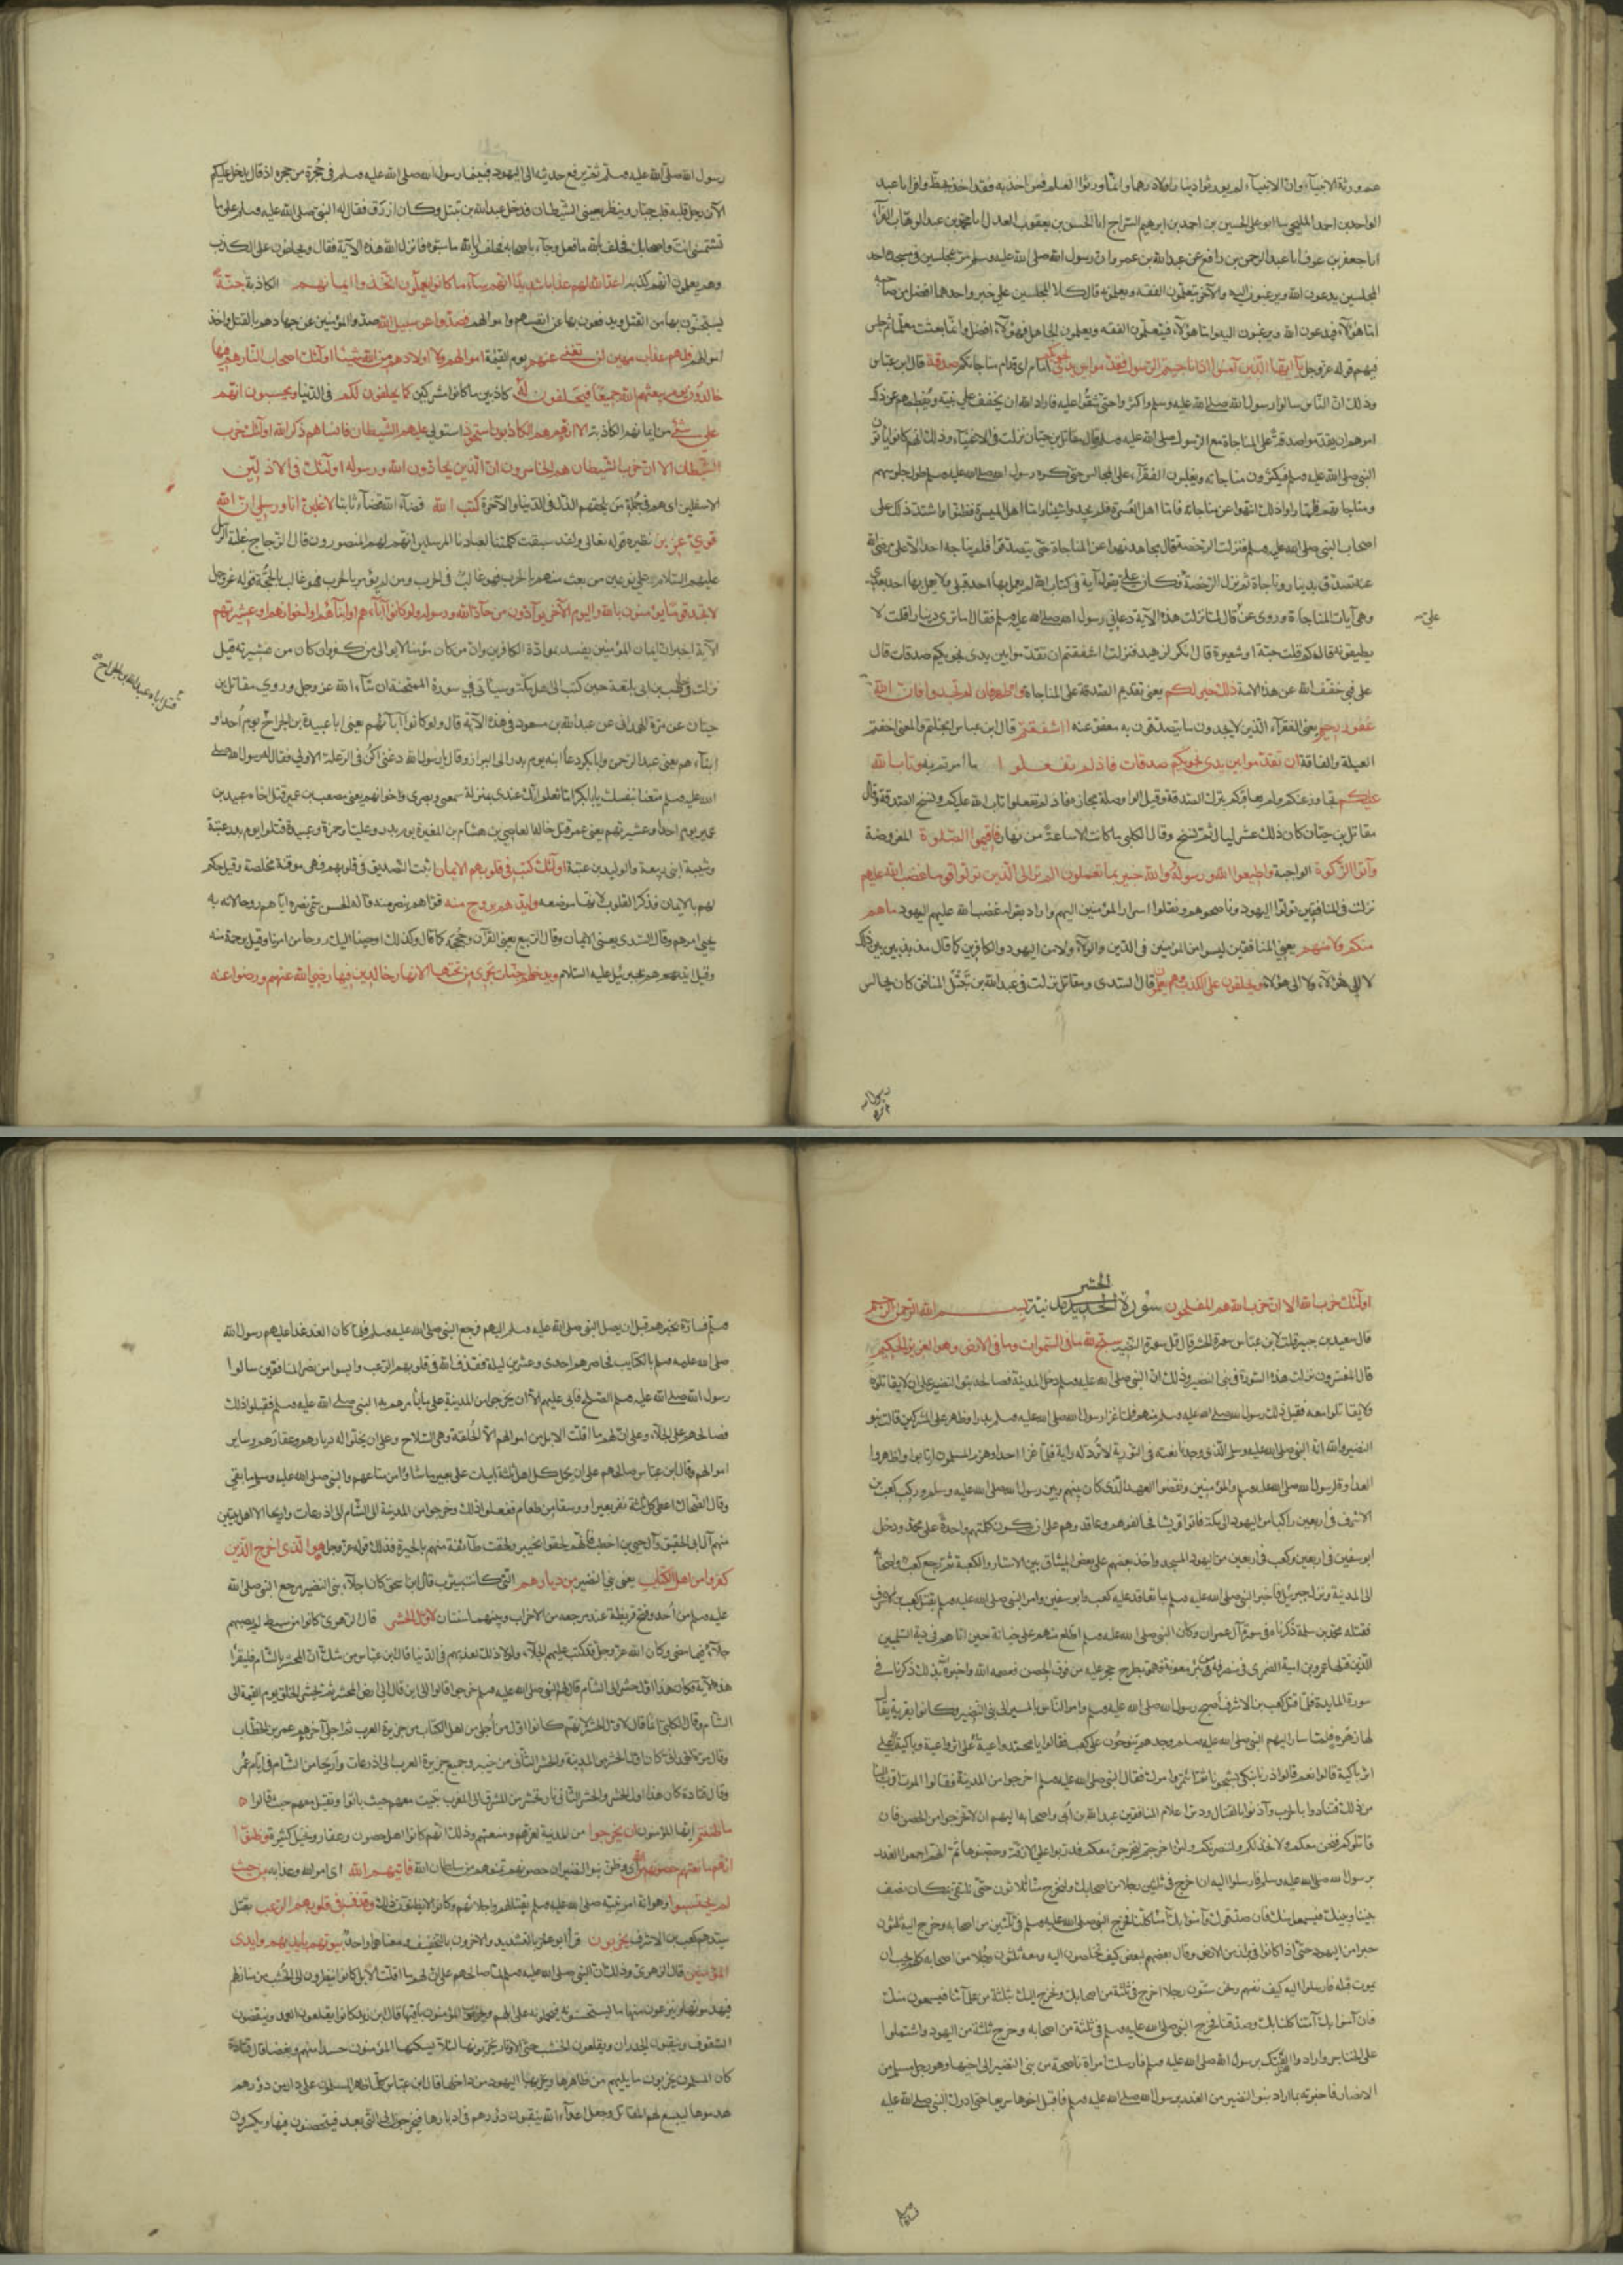 هم ورثة الانبياء وان الانبياء لم يورثوا دينارا ولا درهما وانما ورثوا العلم فمن اخذ به فقد اخذ بحظ وافر انا عبد
الواحد بن احمد المليحي سا ابو علي الحسين بن احمد بن ابرهيم السراج انا الحسن بن يعقوب العدل انا محمد بن عبد الوهاب الفرآء
انا جعفر بن عون انا عبد الرحمن بن رافع عن عبد الله بن عمرو ان رسول الله صلى الله عليه وسلم مر بمجلسين في مسجده احد
المجلسين يدعون الله ويرغبون اليه والآخر يتعلمون الفقه ويعلمونه قال كلا المجلسين على خير واحدهما افضل من صاحبه
اما هؤلاء فيدعون الله ويرغبون اليه واما هؤلاء فيتعلمون الفقه ويعلمون الجاهل فهؤلاء افضل وانما بعثت معلما ثم جلس
فيهم قوله عز وجل يا ايها الذين آمنوا اذا ناجيتم الرسول فقدموا بين يدي نجويكم امام مناجاتكم صدقة قال ابن عباس
وذلك ان الناس سالوا رسول الله صلى الله عليه وسلم واكثروا حتى شقوا عليه فاراد الله ان يخفف على نبيه
امرهم ان يقدموا صدقة على المناجاة مع الرسول صلى الله عليه وسلم وقال مقاتل بن حيان نزلت في الاغنياء وذلك انهم كانوا ياتون
النبي صلى الله عليه وسلم فيكثرون مناجاته ويغلبون الفقرآء على المجالس حتى كره رسول الله صلى الله عليه وسلم طول جلوسهم
ومناجاتهم فلما راوا ذلك انتهوا عن مناجاته فاما اهل العسرة فلم يجدوا شيئا واما اهل الميسرة فضنوا واشتد ذلك على
اصحاب النبي صلى الله عليه وسلم فنزلت الرخصة قال مجاهد نهوا عن المناجاة حتى يتصدقوا فلم يناجه احد الا علي رضي الله
عنه تصدق بدينار وناجاه ثم نزل الرخصة فكان علي يقول آية في كتاب الله لم يعمل بها احد قبلي ولا يعمل بها احد بعدي
وهي آيات المناجاة وروي عن قال لما نزلت هذه الآية دعاني رسول الله صلى الله عليه وسلم فقال ما ترى دينارا قلت لا
علي
يطيقونه قال فكم قلت حبة او شعيرة قال انك لزهيد فنزلت أاشفقتم ان تقدموا بين يدي نجويكم صدقات قال
علي فبي خفف الله عن هذه الامة ذلك خير لكم يعني تقديم الصدقة على المناجاة واطهر فان لم تجدوا فان الله
غفور رحيم يعني الفقرآء الذين لا يجدون ما يتصدقون به معفو عنه ااشفقتم قال ابن عباس ابخلتم والمعنى اخفتم
العيلة والفاقة ان تقدموا بين يدي نجويكم صدقات فاذ لم تفعلوا ما امرتم به وتاب الله
عليكم تجاوز عنكم ولم يعاقبكم بترك الصدقة وقيل الواو صلة مجازه فاذ لم تفعلوا تاب الله عليكم ونسخ الصدقة وقال
مقاتل بن حيان كان ذلك عشر ليال ثم نسخ وقال الكلبي ما كانت الا ساعة من نهار فاقيموا الصلوة المفروضة
وآتوا الزكوة الواجبة واطيعوا الله ورسوله والله خبير بما تعملون الم تر الى الذين تولوا قوما غضب الله عليهم
نزلت في المنافقين تولوا اليهود وناصحوهم ونقلوا اسرار المؤمنين اليهم واراد بقوله غضب الله عليهم اليهود ما هم
منكم ولا منهم يعني المنافقين ليسوا من المؤمنين في الدين والولآء ولا من اليهود والكافرين كما قال مذبذبين بين ذلك
لا الى هؤلاء ولا الى هؤلاء ويحلفون على الكذب وهم يعلمون قال السدى ومقاتل نزلت في عبد الله بن نبتل المنافق كان يجالس
رسول الله صلى الله عليه وسلم ثم يرفع حديثه الى اليهود فبينما رسول الله صلى الله عليه وسلم في حجرة من حجره اذ قال يدخل عليكم
الآن رجل قلبه قلب جبار وينظر بعيني الشيطان فدخل عبد الله بن نبتل وكان ازرق فقال له النبي صلى الله عليه وسلم على ما
تشتمني انت واصحابك فحلف بالله ما فعل وجآء باصحابه فحلفوا بالله ما سبوه فانزل الله هذه الآية فقال ويحلفون على الكذب
وهم يعلمون انهم كذبه اعد الله لهم عذابا شديدا انهم سآء ما كانوا يعملون اتخذوا ايمانهم الكاذبة جنة
يستجنون بها من القتل ويدفعون بها عن انفسهم واموالهم فصدوا عن سبيل الله صدوا المؤمنين عن جهادهم بالقتل واخذ
اموالهم فلهم عذاب مهين لن تغني عنهم يوم القيمة اموالهم ولا اولادهم من الله شيئا اولئك اصحاب النار هم فيها
خالدون يوم يبعثهم الله جميعا فيحلفون له كاذبين ما كانوا مشركين كما يحلفون لكم في الدنيا ويحسبون انهم
على شئ من ايمانهم الكاذبة الا انهم هم الكاذبون استحوذ استولى عليهم الشيطان فانساهم ذكر الله اولئك حزب
الشيطان الا ان حزب الشيطان هم الخاسرون ان الذين يحادون الله ورسوله اولئك في الاذلين
الاسفلين اي هم في جملة من يلحقهم الذل في الدنيا والآخرة كتب الله قضآء الله قضآء ثابتا لاغلبن انا ورسلي ان الله
قوي عزيز نظيره قوله تعالى ولقد سبقت كلمتنا لعبادنا المرسلين انهم لهم المنصورون قال الزجاج غلبة الرسل
عليهم السلام على نوعين من بعث منهم بالحرب فهو غالب في الحرب ومن لم يؤمر بالحرب فهو غالب بالحجة قوله عز وجل
لا تجد قوما يؤمنون بالله واليوم الآخر يوآدون من حآد الله ورسوله ولو كانوا آبآءهم او ابنآءهم او اخوانهم او عشيرتهم
الآية اخبر ان ايمان المؤمنين يفسد بموادة الكافرين وان من كان مؤمنا لا يوالي من كفر وان كان من عشيرته قيل
نزلت في حاطب بن ابي بلتعة حين كتب الى اهل مكة وسياتي في سورة الممتحنة ان شآء الله عز وجل وروي مقاتل بن
حيان عن مرة الهمداني عن عبد الله بن مسعود في هذه الآية قال ولو كانوا آبآئهم يعني ابا عبيدة بن الجراح يوم أحد او
قتل اباه عبد الله بن الجراح
ابنآءهم يعني عبد الرحمن وابا بكر دعا ابنه يوم بدر الى البراز وقال يا رسول الله دعني اكن في الرعلة الاولى فقال له رسول الله صلى
الله عليه وسلم متعنا بنفسك يا ابا بكر اما تعلم انك عندي بمنزلة سمعي وبصري واخوانهم يعني مصعب بن عمير قتل اخاه عبيد بن
عمير يوم احد او عشيرتهم يعني عمر قتل خاله العاصي بن هشام بن المغيرة يوم بدر وعليا وحمزة وعبيدة قتلوا يوم بدر عتبة
وشيبة ابني ربيعة والوليد بن عتبة اولئك كتب في قلوبهم الايمان اثبت التصديق في قلوبهم فهي موقنة مخلصة وقيل حكم
لهم بالايمان فذكر القلوب لانها موضعه وايدهم بروح منه قواهم بنصر منه قاله الحسن سمى نصره اياهم روحا لانه به
يحيي امرهم وقال السدى يعني الايمان وقال الربيع يعني القرآن وحججه كما قال وكذلك اوحينا اليك روحا من امرنا وقيل برحمة منه
وقيل ايدهم بجبرئيل عليه السلام ويدخلهم جنات تجري من تحتها الانهار خالدين فيها رضي الله عنهم ورضوا عنه
الحشر
اولئك حزب الله الا ان حزب الله هم المفلحون سورة الحديد مدنية بسم الله الرحمن الرحيم
قال سعيد بن جبير قلت لابن عباس سورة الحشر قال قل سورة النضير سبح لله ما في السموات وما في الارض وهو العزيز الحكيم
قال المفسرون نزلت هذه السورة في بني النضير وذلك ان النبي صلى الله عليه وسلم دخل المدينة فصالحه بنوا النضير على ان لا يقاتلوه
ولا يقاتلوا معه فقبل ذلك رسول الله صلى الله عليه وسلم منهم فلما غزا رسول الله صلى الله عليه وسلم بدرا وظهر على المشركين قالت بنو
النضير والله انه النبي صلى الله عليه وسلم الذي وجدنا نعته في التورية لا ترد له راية فلما غزا احدا وهزم المسلمون ارتابوا واظهروا
العداوة لرسول الله صلى الله عليه وسلم والمؤمنين ونقضوا العهد الذي كان بينهم وبين رسول الله صلى الله عليه وسلم وركب كعب بن
الاشرف في اربعين راكبا من اليهود الى مكة فاتوا قريشا فحالفوهم وعاقدوهم على ان تكون كلمتهم واحدة على محمد ودخل
ابو سفين في اربعين وكعب في اربعين من اليهود المسجد واخذ بعضهم على بعض الميثاق بين الاستار والكعبة ثم رجع كعب واصحابه
الى المدينة ونزل جبريل فاخبر النبي صلى الله عليه وسلم بما تعاقد عليه كعب وابو سفين وامر النبي صلى الله عليه وسلم بقتل كعب بن الاشرف
فقتله محمد بن سلمة ذكرناه في سورة آل عمران وكان النبي صلى الله عليه وسلم اطلع منهم على خيانة حين اتاهم في دية المسلمين
الذين قتلهما عمرو بن امية الضمري في منصرفه من بئر معونة فهموا بطرح حجر عليه من فوق الحصن فعصمه الله واخبره بذلك ذكرناه في
سورة المايدة فلما قتل كعب بن الاشرف اصبح رسول الله صلى الله عليه وسلم وامر الناس بالمسير الى بني النضير وكانوا بقرية يقال
لها زهرة فلما سار اليهم النبي صلى الله عليه وسلم وجدهم ينوحون على كعب فقالوا يا محمد واعية على اثر واعية وباكية على
اثر باكية قالوا نعم قالوا ذرنا نبكي شجونا ثم ائتمر امرك فقال النبي صلى الله عليه وسلم اخرجوا من المدينة فقالوا الموت اقرب الينا
من ذلك فتنادوا بالحرب وآذنوا بالقتال ودس اعلام المنافقين عبد الله بن أبى واصحابه اليهم ان لا تخرجوا من الحصن فان
قاتلوكم فنحن معكم ولا نخذلكم ولننصرنكم ولئن اخرجتم لنخرجن معكم فدربوا على الازقة وحصنوها ثم انهم اجمعوا الغدر
برسول الله صلى الله عليه وسلم فارسلوا اليه ان اخرج في ثلثين رجلا من اصحابك وليخرج منا ثلاثون حتى نلتقي بمكان نصف
بيننا وبينك فيسمعوا منك فان صدقوك وآمنوا بك آمنا كلنا فخرج النبي صلى الله عليه وسلم في ثلثين من اصحابه وخرج اليه ثلثون
حبرا من اليهود حتى اذا كانوا في براز من الارض وقال بعضهم لبعض كيف تخلصون اليه ومعه ثلثون رجلا من اصحابه كلهم يحب ان
يموت قبله فارسلوا اليه كيف نفهم ونحن ستون رجلا اخرج في ثلثة من اصحابك ونخرج اليك ثلثة من علمآئنا فيسمعون منك
فان آمنوا بك آمنا كلنا بك وصدقناك فخرج النبي صلى الله عليه وسلم في ثلثة من اصحابه وخرج ثلثة من اليهود واشتملوا
على الخناجر وارادوا الفتك برسول الله صلى الله عليه وسلم فارسلت امراة ناصحة من بني النضير الى اخيها وهو رجل مسلم من
الانصار فاخبرته بما اراد بنو النضير من الغدر برسول الله صلى الله عليه وسلم فاقبل اخوها سريعا حتى ادرك النبي صلى الله عليه
وسلم فساره بخبرهم قبل ان يصل النبي صلى الله عليه وسلم اليهم فرجع النبي صلى الله عليه وسلم فلما كان الغد غدا عليهم رسول الله
صلى الله عليه وسلم بالكتايب فحاصرهم احدى وعشرين ليلة فقذف الله في قلوبهم الرعب وايسوا من نصر المنافقين سالوا
رسول الله صلى الله عليه وسلم الصلح فابى عليهم الا ان يخرجوا من المدينة على ما يأمرهم به النبي صلى الله عليه وسلم فقبلوا ذلك
فصالحهم على الجلآء وعلى ان لهم ما اقلت الابل من اموالهم الا الحلقة وهي السلاح وعلى ان يخلوا له ديارهم وعقارهم وساير
اموالهم وقال ابن عباس صالحهم على ان يحمل كل اهل ثلثة ابيات على بعير ما شاؤا من متاعهم والنبي صلى الله عليه وسلم ما بقي
وقال الضحاك اعطى كل ثلثة نفر بعيرا ووسقا من طعام ففعلوا ذلك وخرجوا من المدينة الى الشام الى اذرعات واريحا الا اهل بيتين
منهم آل ابي الحقيق وآل حيي بن اخطب فانهم لحقوا بخيبر ولحقت طآئفة منهم بالحيرة فذلك قوله عز وجل هو الذي اخرج الذين
كفروا من اهل الكتاب يعني بني النضير من ديارهم التي كانت بيثرب قال ابن اسحق كان اجلآء بني النضير مرجع النبي صلى الله
عليه وسلم من أحد وفتح قريظة عند مرجعه من الاحزاب وبينهما سنتان لاول الحشر قال الزهري كانوا من سبط لم يصبهم
جلآء فيما مضى وكان الله عز وجل قد كتب عليهم الجلآء ولولا ذلك لعذبهم في الدنيا قال ابن عباس من شك ان المحشر بالشام فليقرأ
هذه الآية فكان هذا اول حشر الى الشام قال لهم النبي صلى الله عليه وسلم اخرجوا قالوا الى اين قال الى ارض المحشر ثم يحشر الخلق يوم القيمة الى
الشام وقال الكلبي انما قال لاول الحشر لانهم كانوا اول من أجلي من اهل الكتاب من جزيرة العرب ثم اجلى آخرهم عمر بن الخطاب
وقال مرة الهمداني كان اول الحشر من المدينة والحشر الثاني من خيبر وجميع جزيرة العرب الى اذرعات وأريحا من الشام في ايام عمر
وقال قتادة كان هذا اول الحشر والحشر الثاني نار تحشرهم من المشرق الى المغرب تبيت معهم حيث باتوا وتقيل معهم حيث قالوا
ما ظننتم ايها المؤمنون ان يخرجوا من المدينة لعزتهم ومنعتهم وذلك انهم كانوا اهل حصون وعقار ونخيل كثيرة وظنوا
انهم مانعتهم حصونهم اي وظن بنو النضير ان حصونهم تمنعهم من سلطان الله فاتيهم الله اي امر الله وعذابه من حيث
لم يحتسبوا وهو انه امر نبيه صلى الله عليه وسلم بقتالهم واجلائهم وكانوا لا يظنون ذلك وقذف في قلوبهم الرعب بقتل
سيدهم كعب بن الاشرف يخربون قرأ ابو عمرو بالتشديد والآخرون بالتخفيف ومعناهما واحد بيوتهم بايديهم وايدى
المؤمنين قال الزهري وذلك ان النبي صلى الله عليه وسلم لما صالحهم على ان لهم ما اقلت الابل كانوا ينظرون الى الخشب من منازلهم
فيهدمونها وينزعون منها ما يستحسنونه فيحملونه على ابلهم ويخرب المؤمنون باقيها قال ابن زيد كانوا يقلعون العمد وينقضون
السقوف وينقبون الجدران ويقلعون الخشب حتى الاوتاد يخربونها لئلا يسكنها المؤمنون حسدا منهم وبغضا قال قتادة
كان المسلمون يخربون ما يليهم من ظاهرها ويخربها اليهود من داخلها قال ابن عباس كلما ظهر المسلمون على دار من دورهم
هدموها ليتسع لهم المقاتل وجعل اعدآء الله ينقبون دورهم في ادبارها فيخرجون الى التي بعدها فيتحصنون فيها ويكسرون